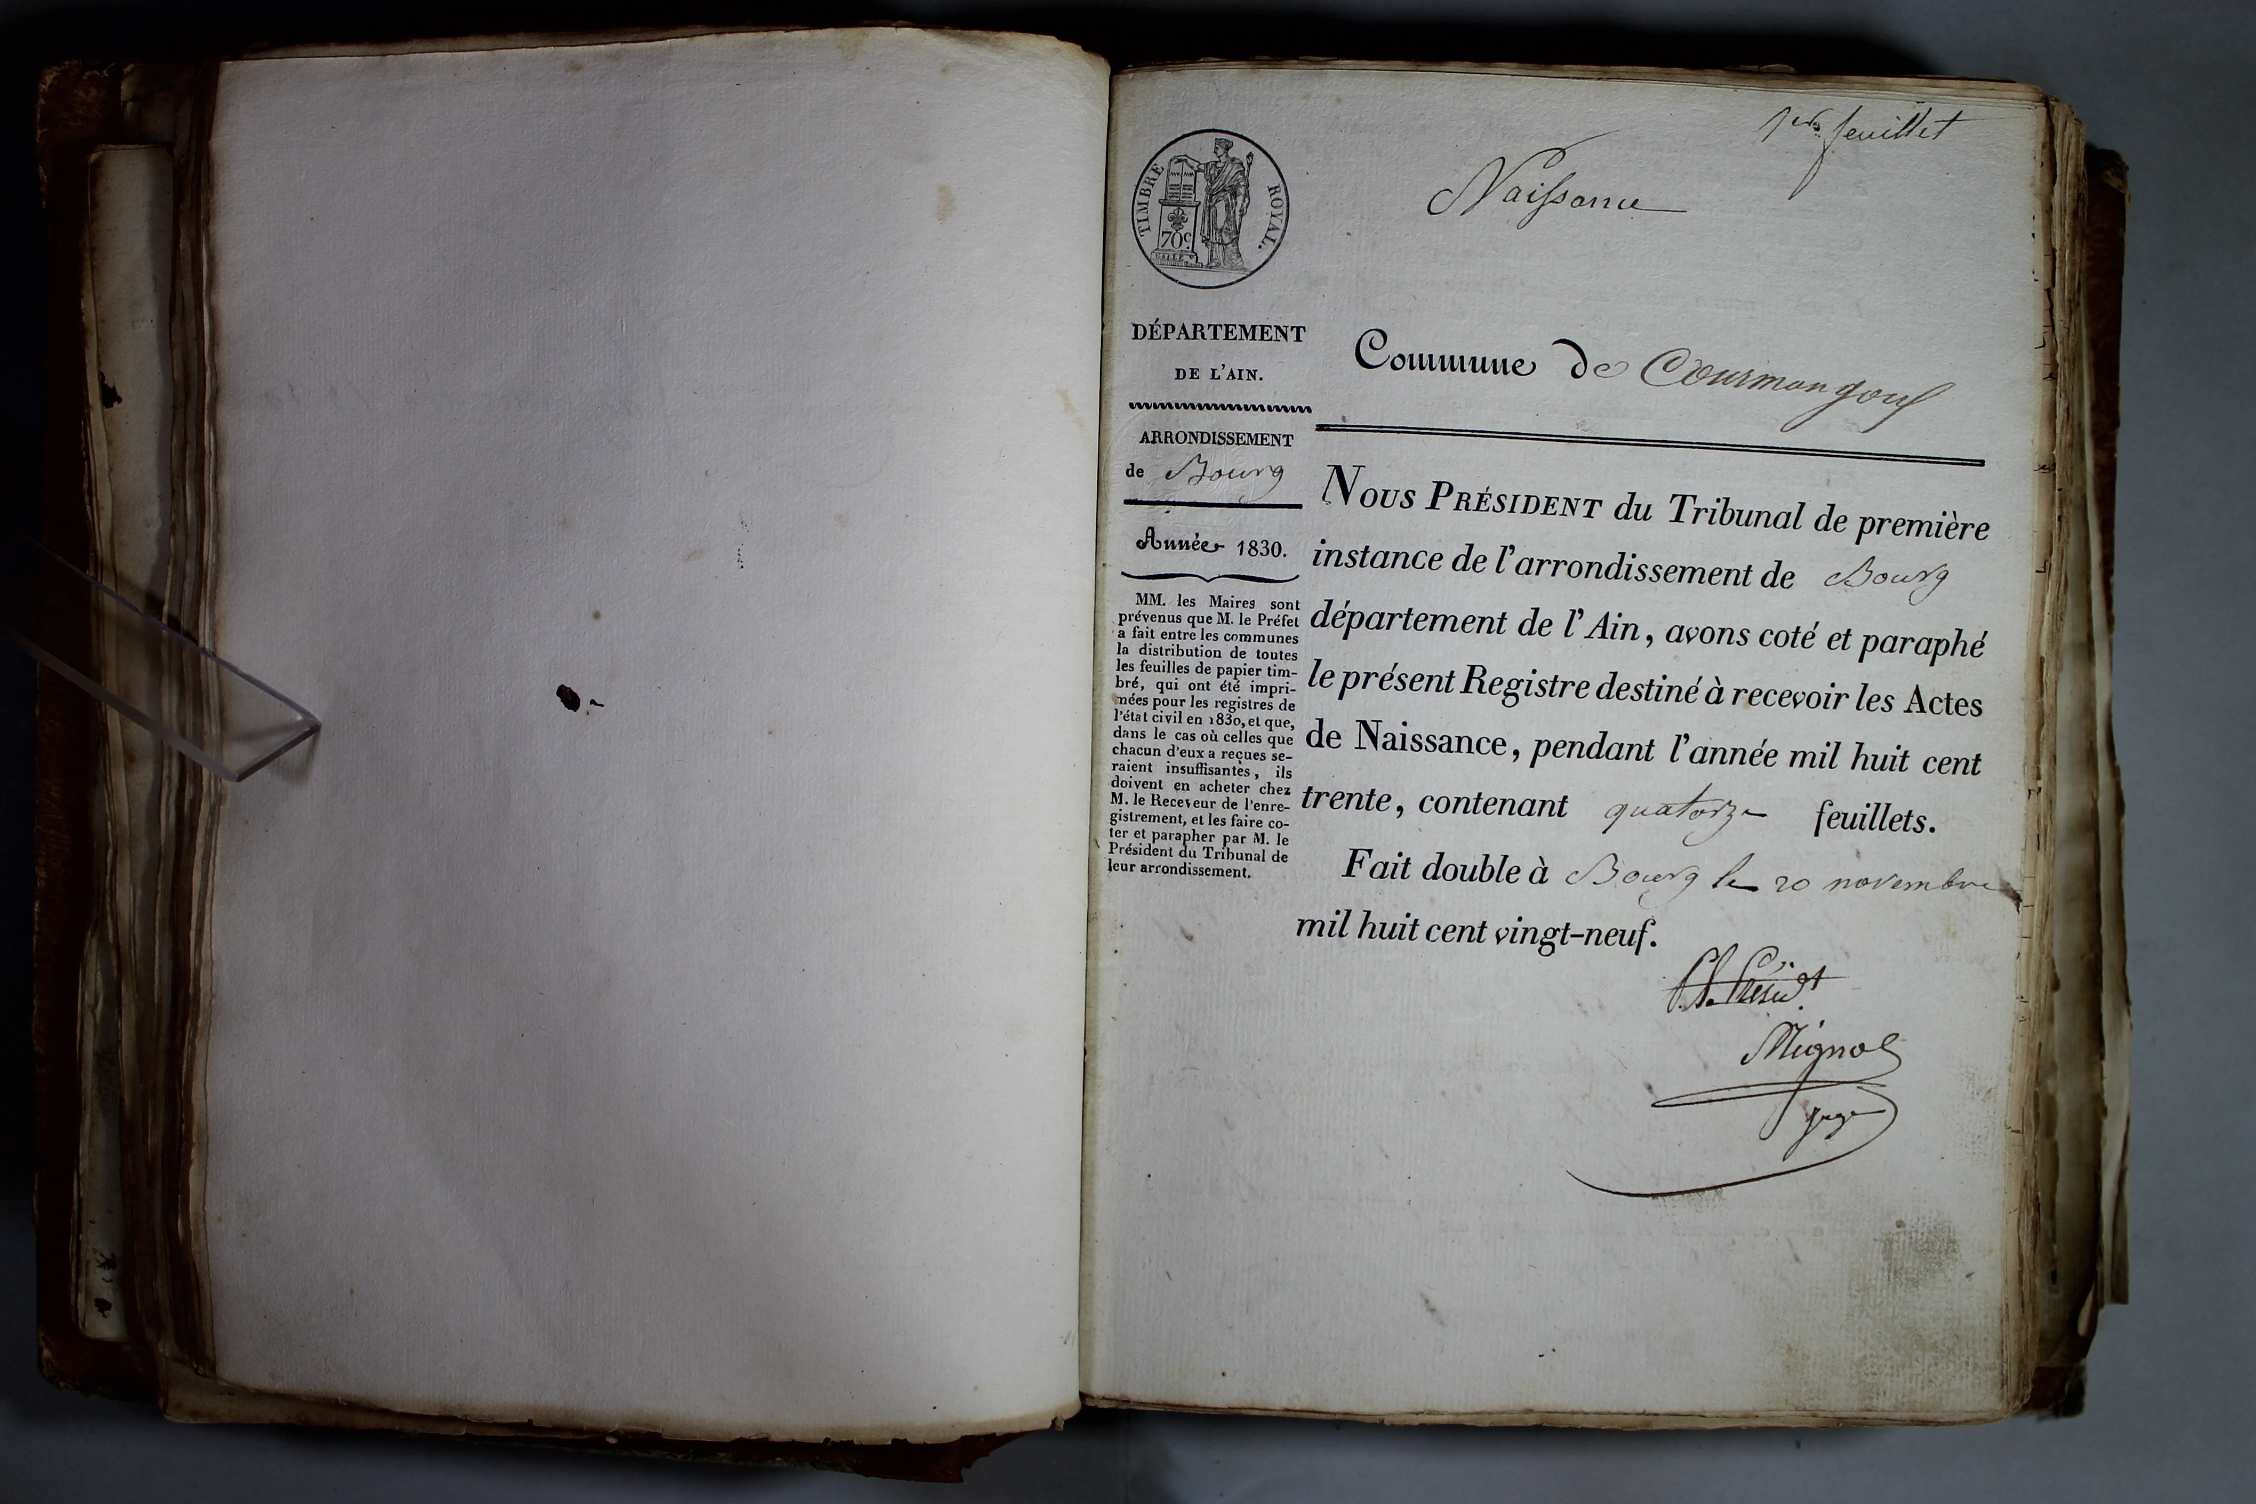 1er feuillet
Naissance
TIMBRE ROYAL.
70c.
DÉPARTEMENT
DE L'AIN.
ARRONDISSEMENT
de Bourg
Année 1830.
MM. les Maires sont
prévenus que M. le Préfet
a fait entre les communes
la distribution de toutes
les feuilles de papier tim-
bré, qui ont été impri-
mées pour les registres de
l'état civil en 1830, et que,
dans le cas où celles que
chacun d'eux a reçues se-
raient insuffisantes, ils
doivent en acheter chez
M. le Receveur de l'enre-
gistrement, et les faire co-
ter et parapher par M. le
Président du Tribunal de
leur arrondissement.
Commune de Courmangoux
NOUS PRÉSIDENT du Tribunal de première
instance de l'arrondissement de Bourg
département de l'Ain, avons coté et paraphé
le présent Registre destiné à recevoir les Actes
de Naissance, pendant l'année mil huit cent
trente, contenant quatorze feuillets.
Fait double à Bourg le 20 novembre
mil huit cent vingt-neuf.
Mignot
juge